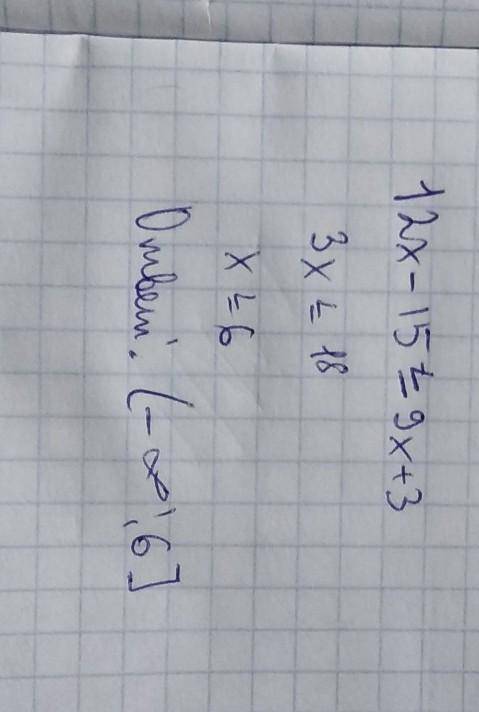 12x - 15 ≤ 9x + 3
3x ≤ 18
x ≤ 6
Ответ: (-∞; 6]